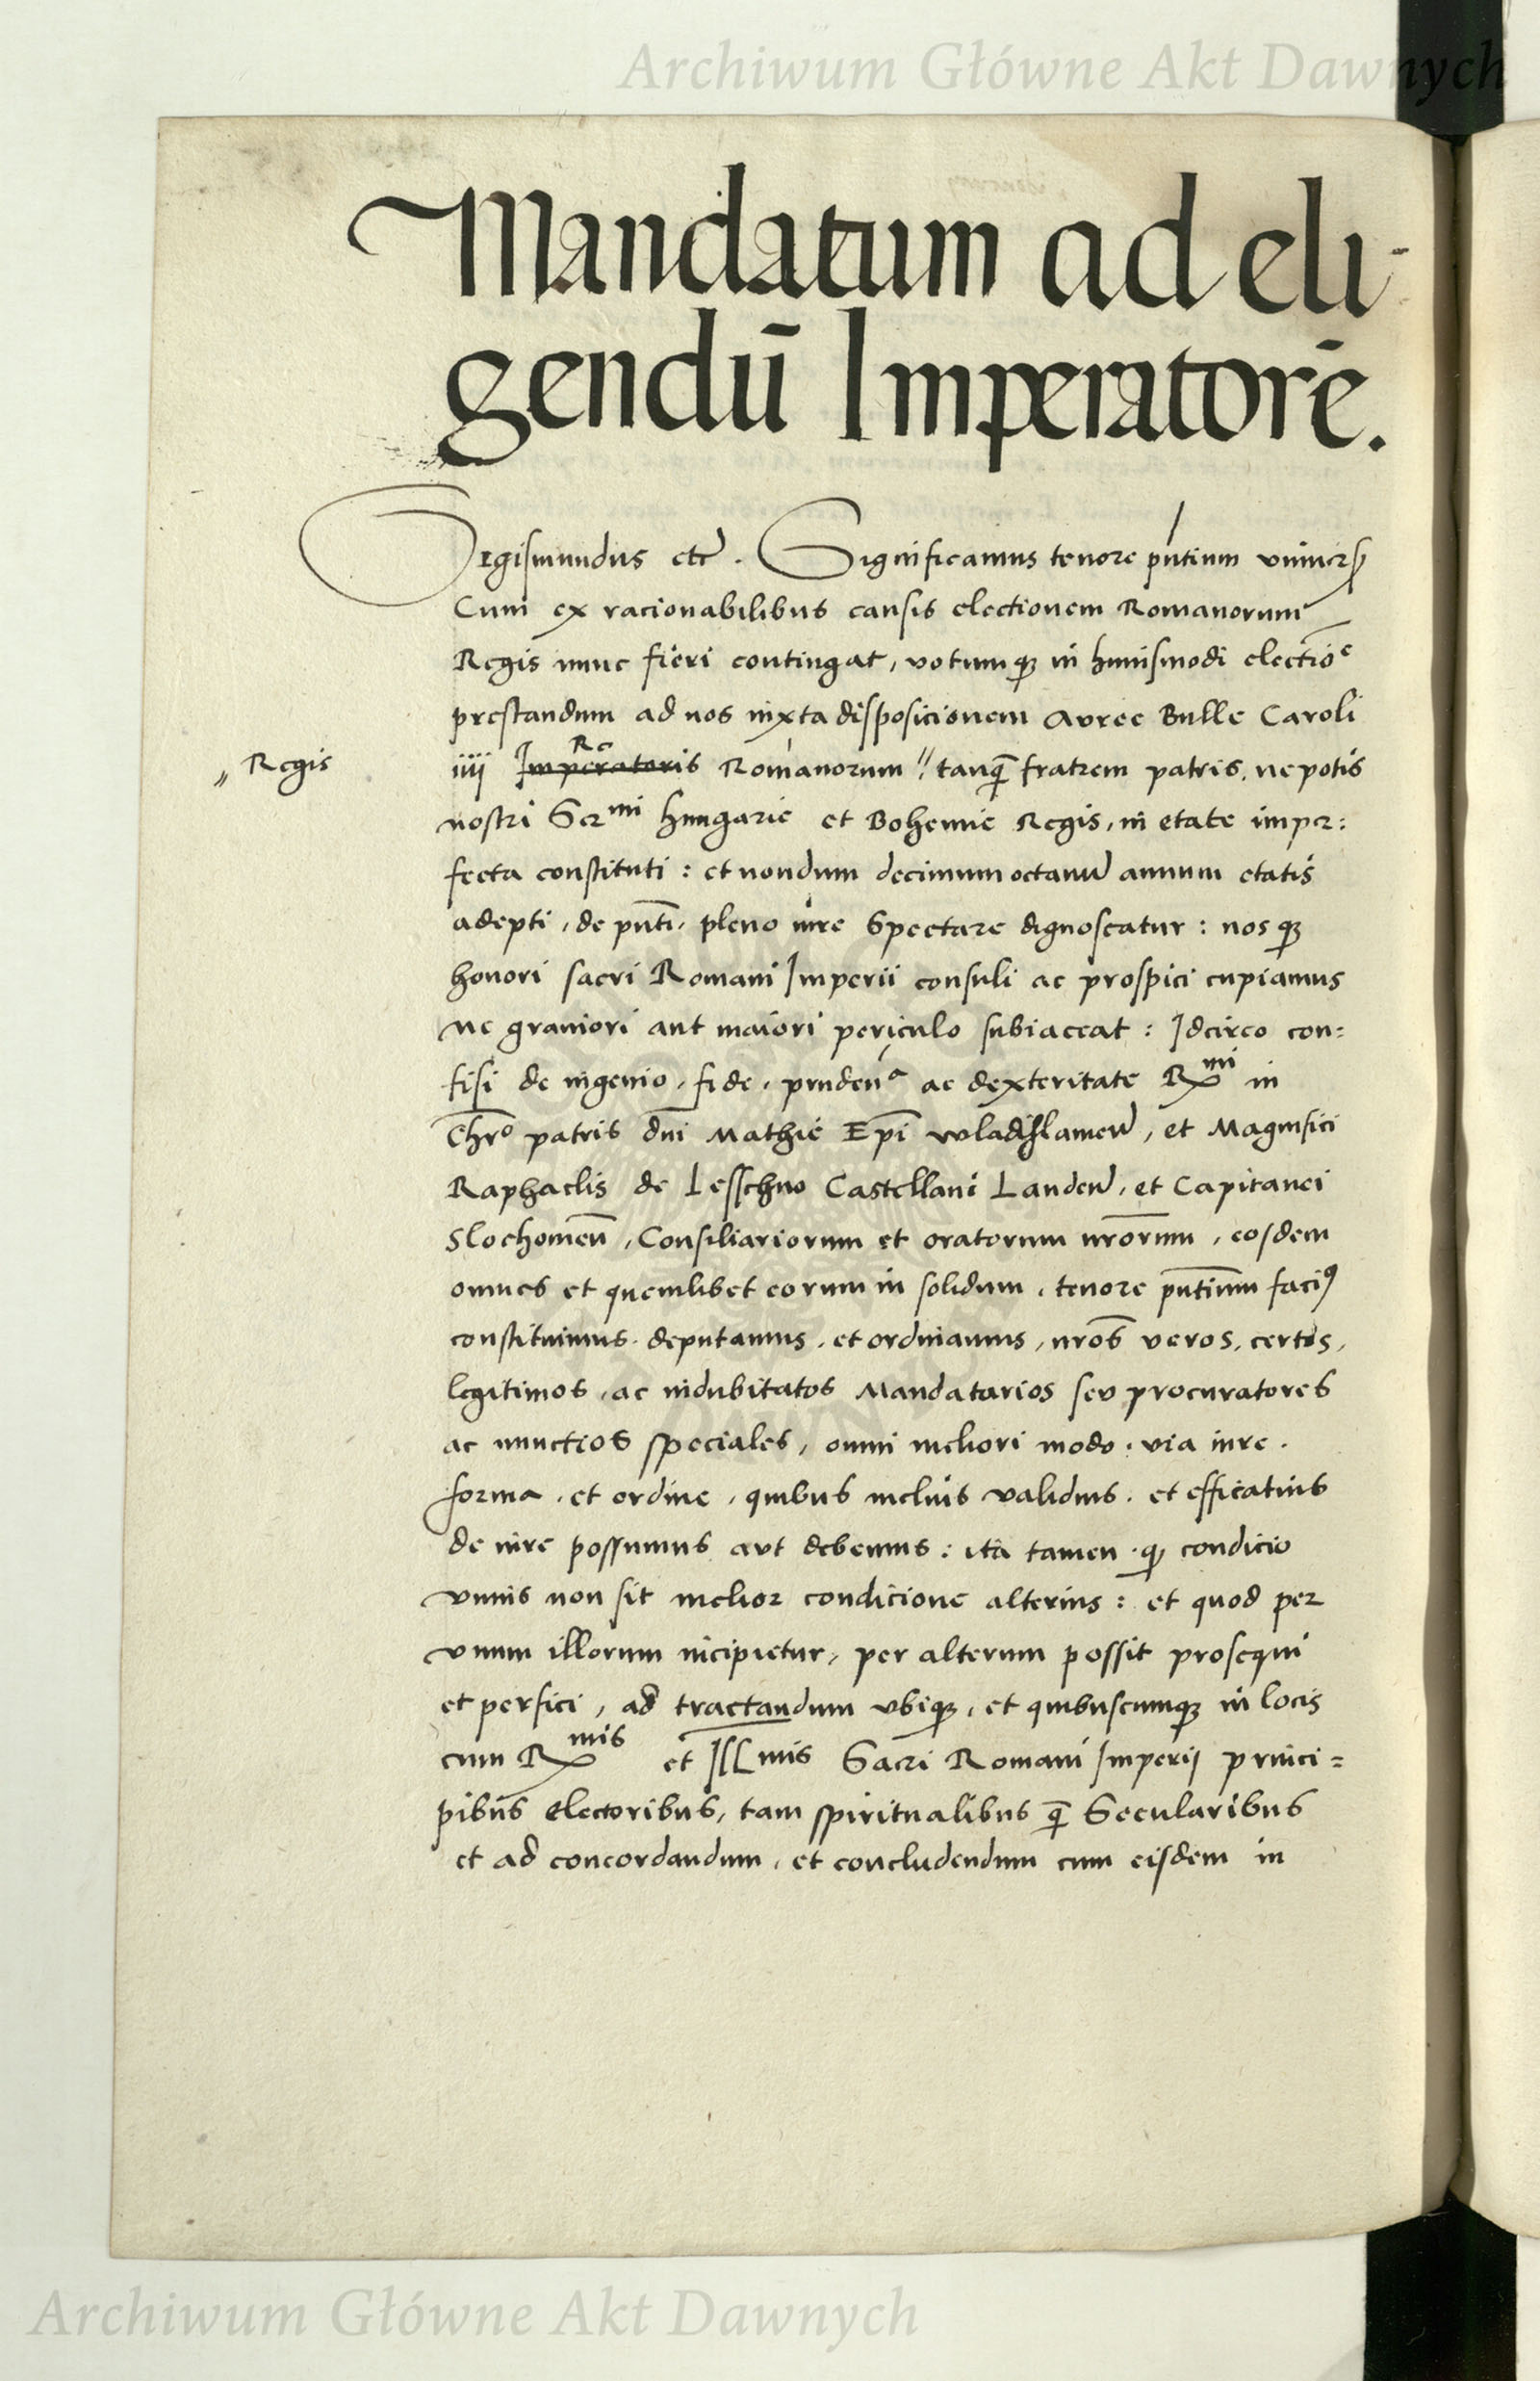 Archiwum Główne Akt Dawnych
Mandatum ad eli-
gendū Imperatorē.
Sigismundus etc. Significamus tenore pn̄tium vniuersis
Cum ex racionabilibus causis electionem Romanorum
Regis nunc fieri contingat, votumqꝫ in huiusmodi electiōe
prestandum ad nos iuxta disposicionem Auree Bulle Caroli
iiii Imperatoris Romanorum // tanqȝ fratrem patris, nepotis
Re
// Regis
nostri Sermi Hungarie et Bohemie Regis, in etate imper:
fecta constituti : et nondum decimumoctauū annum etatis
adepti, de pn̄ti, pleno iure Spectare dignoscatur : nosqꝫ
honori sacri Romani Imperii consuli ac prospici cupiamus
ne grauiori aut maiori periculo subiaceat : Idcirco con=
fisi de ingenio, fide, prudena ac dexteritate Rmi in
Chr̄o patris dn̄i Mathie Ep̄i Wladislauien̄, et Magnifici
Raphaelis de Lesschno Castellani Landen̄, et Capitanei
Slochouien̄, Consiliariorum et oratorum nr̄orum, eosdem
omnes et quemlibet eorum in solidum, tenore pn̄tium faciꝰ
constituimus, deputamus, et ordinamus, nr̄os veros, certos,
legitimos, ac indubitatos Mandatarios seu procuratores
ac nunctios speciales, omni meliori modo, via iure,
forma, et ordine, quibus melius validius, et efficatius
de iure possumus aut debemus : ita tamen qꝫ condicio
vnius non sit melior condicione alterius : et quod per
vnum illorum incipietur, per alterum possit prosequi
et perfici, ad tractandum vbiqꝫ, et quibuscumqꝫ in locis
cum Rmis et Illmis Sacri Romani Imperij princi=
pibus electoribus, tam spiritualibus qȝ Secularibus
et ad concordandum, et concludendum cum eisdem in
Archiwum Główne Akt Dawnych